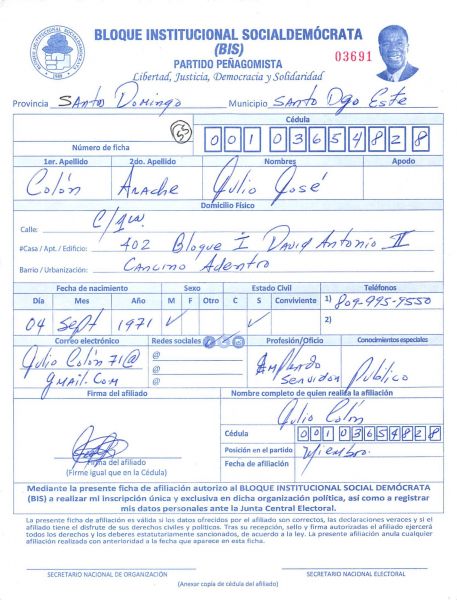 BLOQUE INSTITUCIONAL SOCIALDEMÓCRATA
(BIS)
03691
PARTIDO PEÑAGOMISTA
Libertad, Justicia, Democracia y Solidaridad
Provincia Santo Domingo Municipio Santo Dgo Este
53 Cédula
Número de ficha 001 0365482 8
1er. Apellido 2do. Apellido Nombres Apodo
Colón Arache Julio José
Domicilio Físico
Calle: C/1ra.
#Casa / Apt. / Edificio: 402 Bloque I David Antonio II
Barrio / Urbanización: Cancino Adentro
Fecha de nacimiento Sexo Estado Civil Teléfonos
Día Mes Año M F Otro C S Conviviente 1) 809-995-9550
04 Sept 1971 ✓ ✓ 2)
Correo electrónico Redes sociales Profesión/Oficio Conocimientos especiales
Julio Colón 71@ @ Empleado
gmail.com @ Servidor Público
@
Firma del afiliado Nombre completo de quien realiza la afiliación
Julio Colón
Cédula 00103654828
Posición en el partido Miembro.
Firma del afiliado
(Firme igual que en la Cédula) Fecha de afiliación
Mediante la presente ficha de afiliación autorizo al BLOQUE INSTITUCIONAL SOCIAL DEMÓCRATA
(BIS) a realizar mi inscripción única y exclusiva en dicha organización política, así como a registrar
mis datos personales ante la Junta Central Electoral.
La presente ficha de afiliación es válida si los datos ofrecidos por el afiliado son correctos, las declaraciones veraces y si el
afiliado tiene el disfrute de sus derechos civiles y políticos. Tras su recepción, sello y firma autorizadas el afiliado ejercerá
todos los derechos y los deberes estatutariamente sancionados, de acuerdo a la ley. La presente afiliación anula cualquier
afiliación realizada con anterioridad a la fecha que aparece en esta ficha.
SECRETARIO NACIONAL DE ORGANIZACIÓN SECRETARIO NACIONAL ELECTORAL
(Anexar copia de cédula del afiliado)